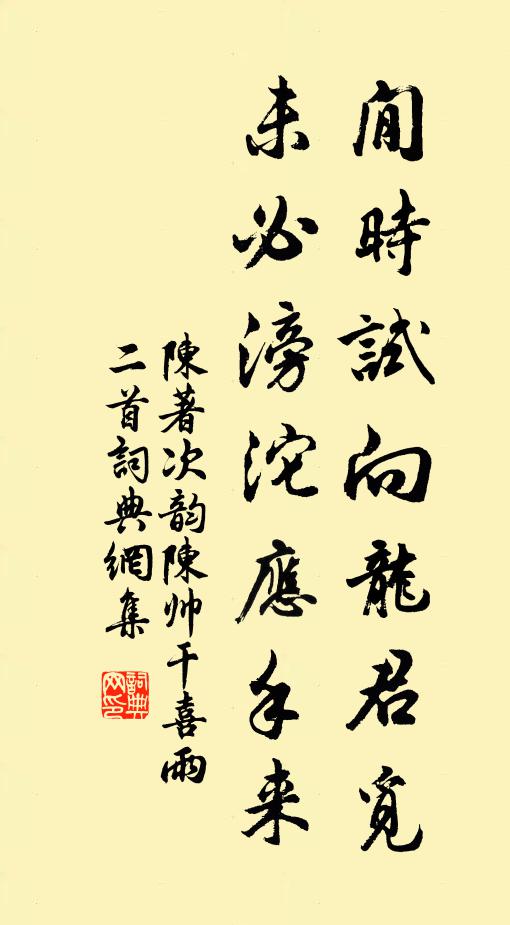 閒時試向龍君覓
未必滂沱應手来
陳著次韵陳帅干喜雨
二首詞典網集
詞典網印